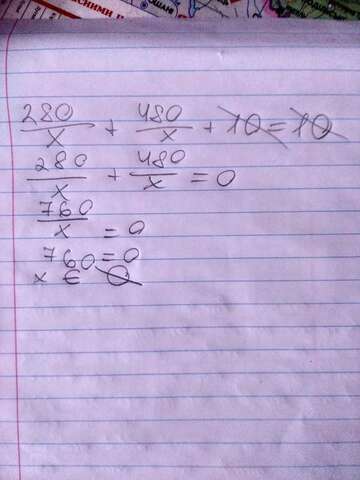 280/x + 480/x + 10 = 10
280/x + 480/x = 0
760/x = 0
760 = 0
x ∈ Ø